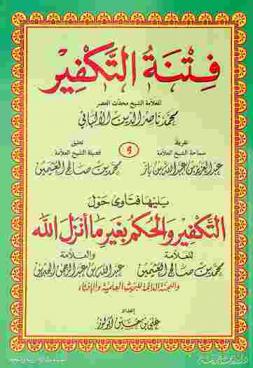 فِتْنَةُ التَّكْفِير
للعلامة الشيخ محدث العصر
محمد ناصر الدين الألباني
تقريظ
سماحة الشيخ العلامة
عبد العزيز بن عبد الله بن باز
و
تعليق
فضيلة الشيخ العلامة
محمد بن صالح العثيمين
يليها فتاوى حول
التكفير والحكم بغير ما أنزل الله
للعلامة
محمد بن صالح العثيمين
والعلامة
عبد الله بن عبد الرحمن الجبرين
واللجنة الدائمة للبحوث العلمية والإفتاء
إعداد
علي بن حسين أبو لوز